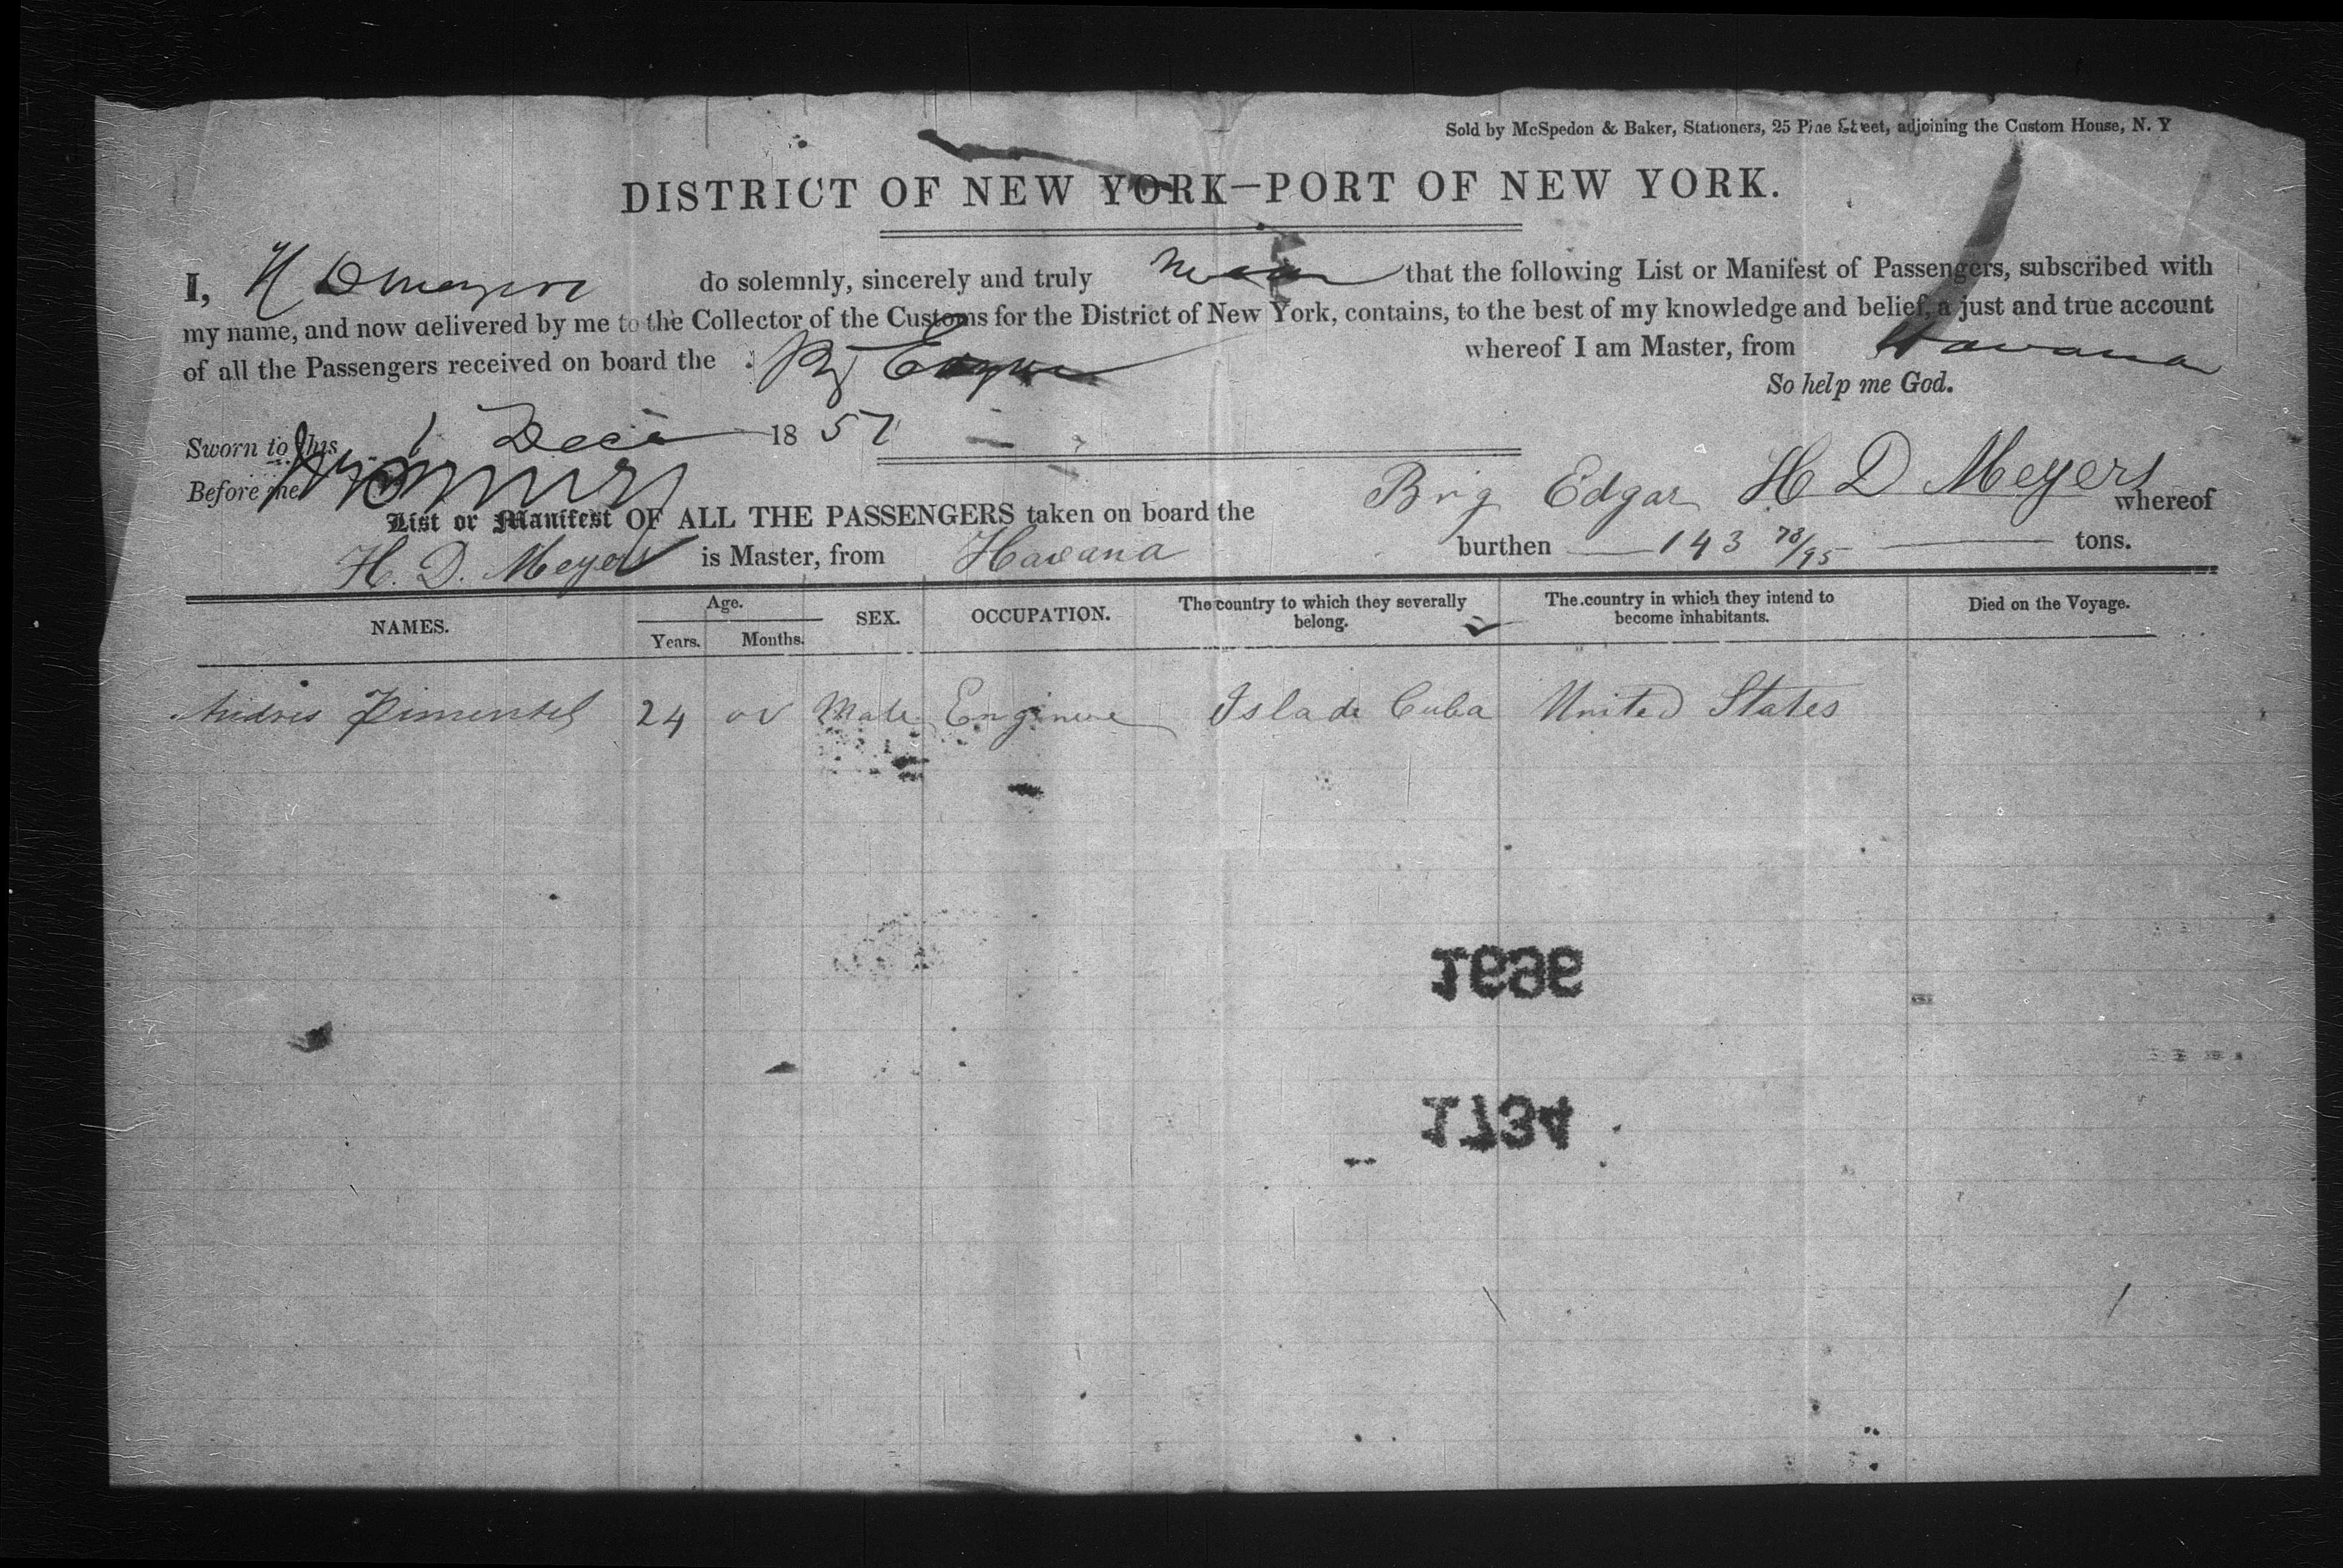 Sold by McSpedon & Baker, Stationers, 25 Pine Street, adjoining the Custom House, N. Y
DISTRICT OF NEW YORK—PORT OF NEW YORK.
I, H D Meyers do solemnly, sincerely and truly swear that the following List or Manifest of Passengers, subscribed with
my name, and now delivered by me to the Collector of the Customs for the District of New York, contains, to the best of my knowledge and belief, a just and true account
of all the Passengers received on board the Brig Edgar whereof I am Master, from Havana
So help me God.
Sworn to this 1 Dec 1851
Before me
H D Meyers
List or Manifest OF ALL THE PASSENGERS taken on board the Brig Edgar whereof
H. D. Meyers is Master, from Havana burthen 143 78/95 tons.
NAMES. Age. Years. Months. SEX. OCCUPATION. The country to which they severally belong. The country in which they intend to become inhabitants. Died on the Voyage.
Andres Pimentel 24 Male Engineer Isla de Cuba United States
1696
1734